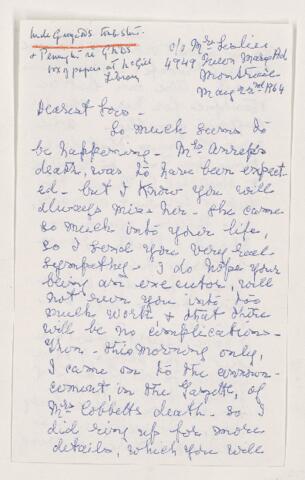 c/o Mrs Leslie
4949 Queen Mary Rd
Montreal
May 22nd 1964
+
box of papers at McGill
Library
Dearest
So much seems to
be happening - Mrs
death, was to have been expect-
ed - but I know you will
always miss her. She came
so much into your life,
so I send you very real
sympathy - I do hope your
being an executor, will
not run you into too
much work & that there
will be no complications -
Then - this morning only,
I came on to the announ-
cement, in the Gazette, of
Mrs Cobbetts death - so I
did ring up for more
details, which you will